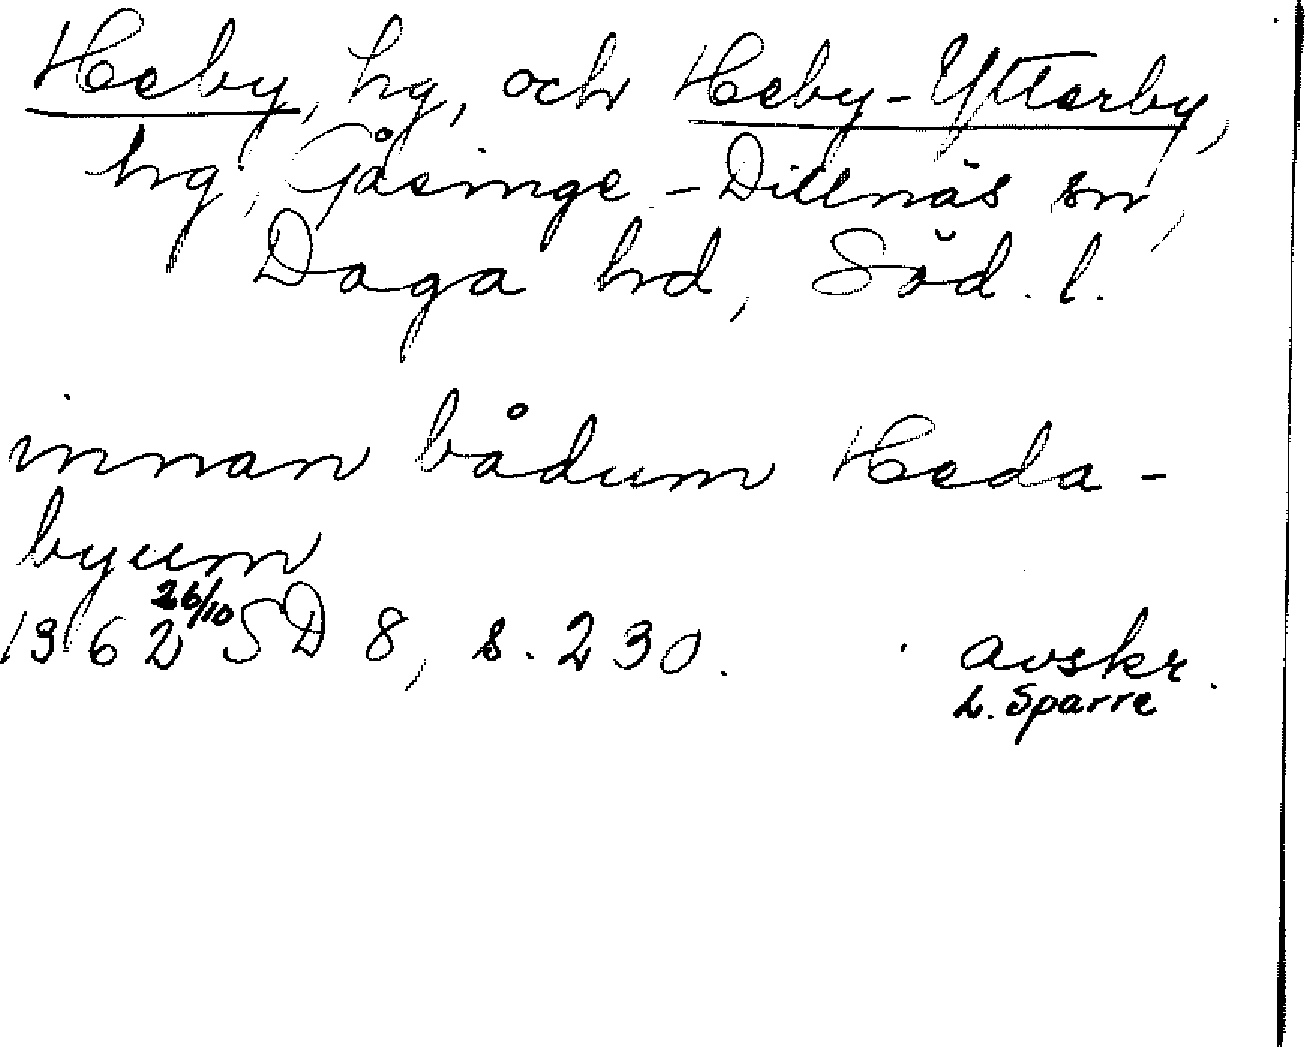 Heby, hg, och Heby-Ytterby,
hg, Gåsinge-Dillnäs sn,
Daga hd, Söd. l.
innan bådum Heda-
byum
1362 26/10 SD 8, s. 230. avskr.
L. Sparre